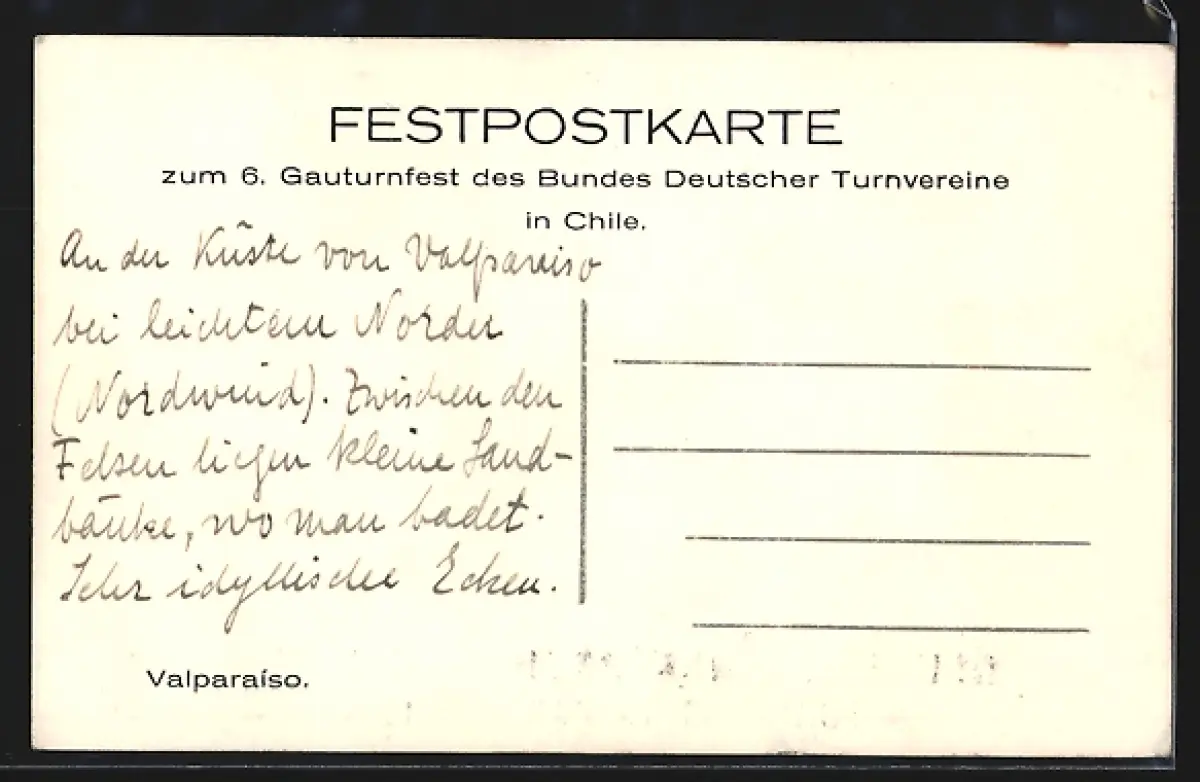 FESTPOSTKARTE
zum 6. Gauturnfest des Bundes Deutscher Turnvereine
in Chile.
An der Küste von Valparaiso
bei leichtem Norder
(Nordwind). Zwischen den
Felsen liegen kleine Sand-
bänke, wo man badet.
Sehr idyllische Ecken.
Valparaíso.